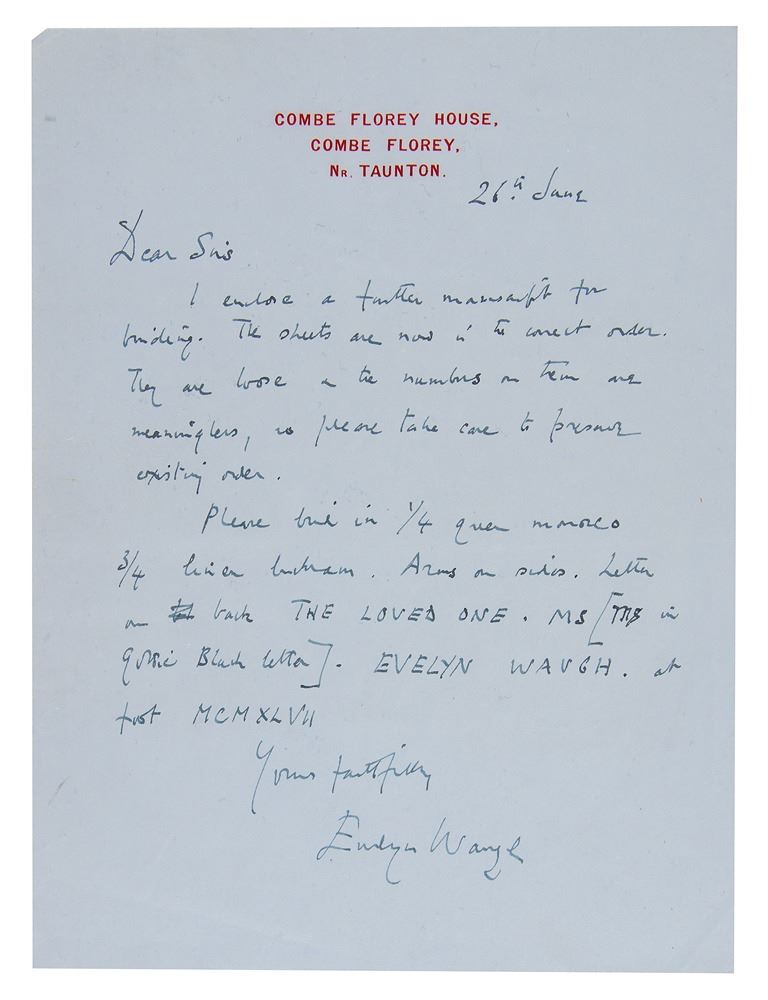 COMBE FLOREY HOUSE,
COMBE FLOREY,
Nr. TAUNTON.
26th June
Dear Sirs
I enclose a further manuscript for
binding. The sheets are now in the correct order.
They are loose & the numbers on them are
meaningless, so please take care to preserve
existing order.
Please bind in 1/4 green morocco
3/4 linen buckram. Arms on sides. Letter
on back THE LOVED ONE. MS [MS in
Gothic Black letter]. EVELYN WAUGH. at
foot MCMXLVII
Yours faithfully
Evelyn Waugh